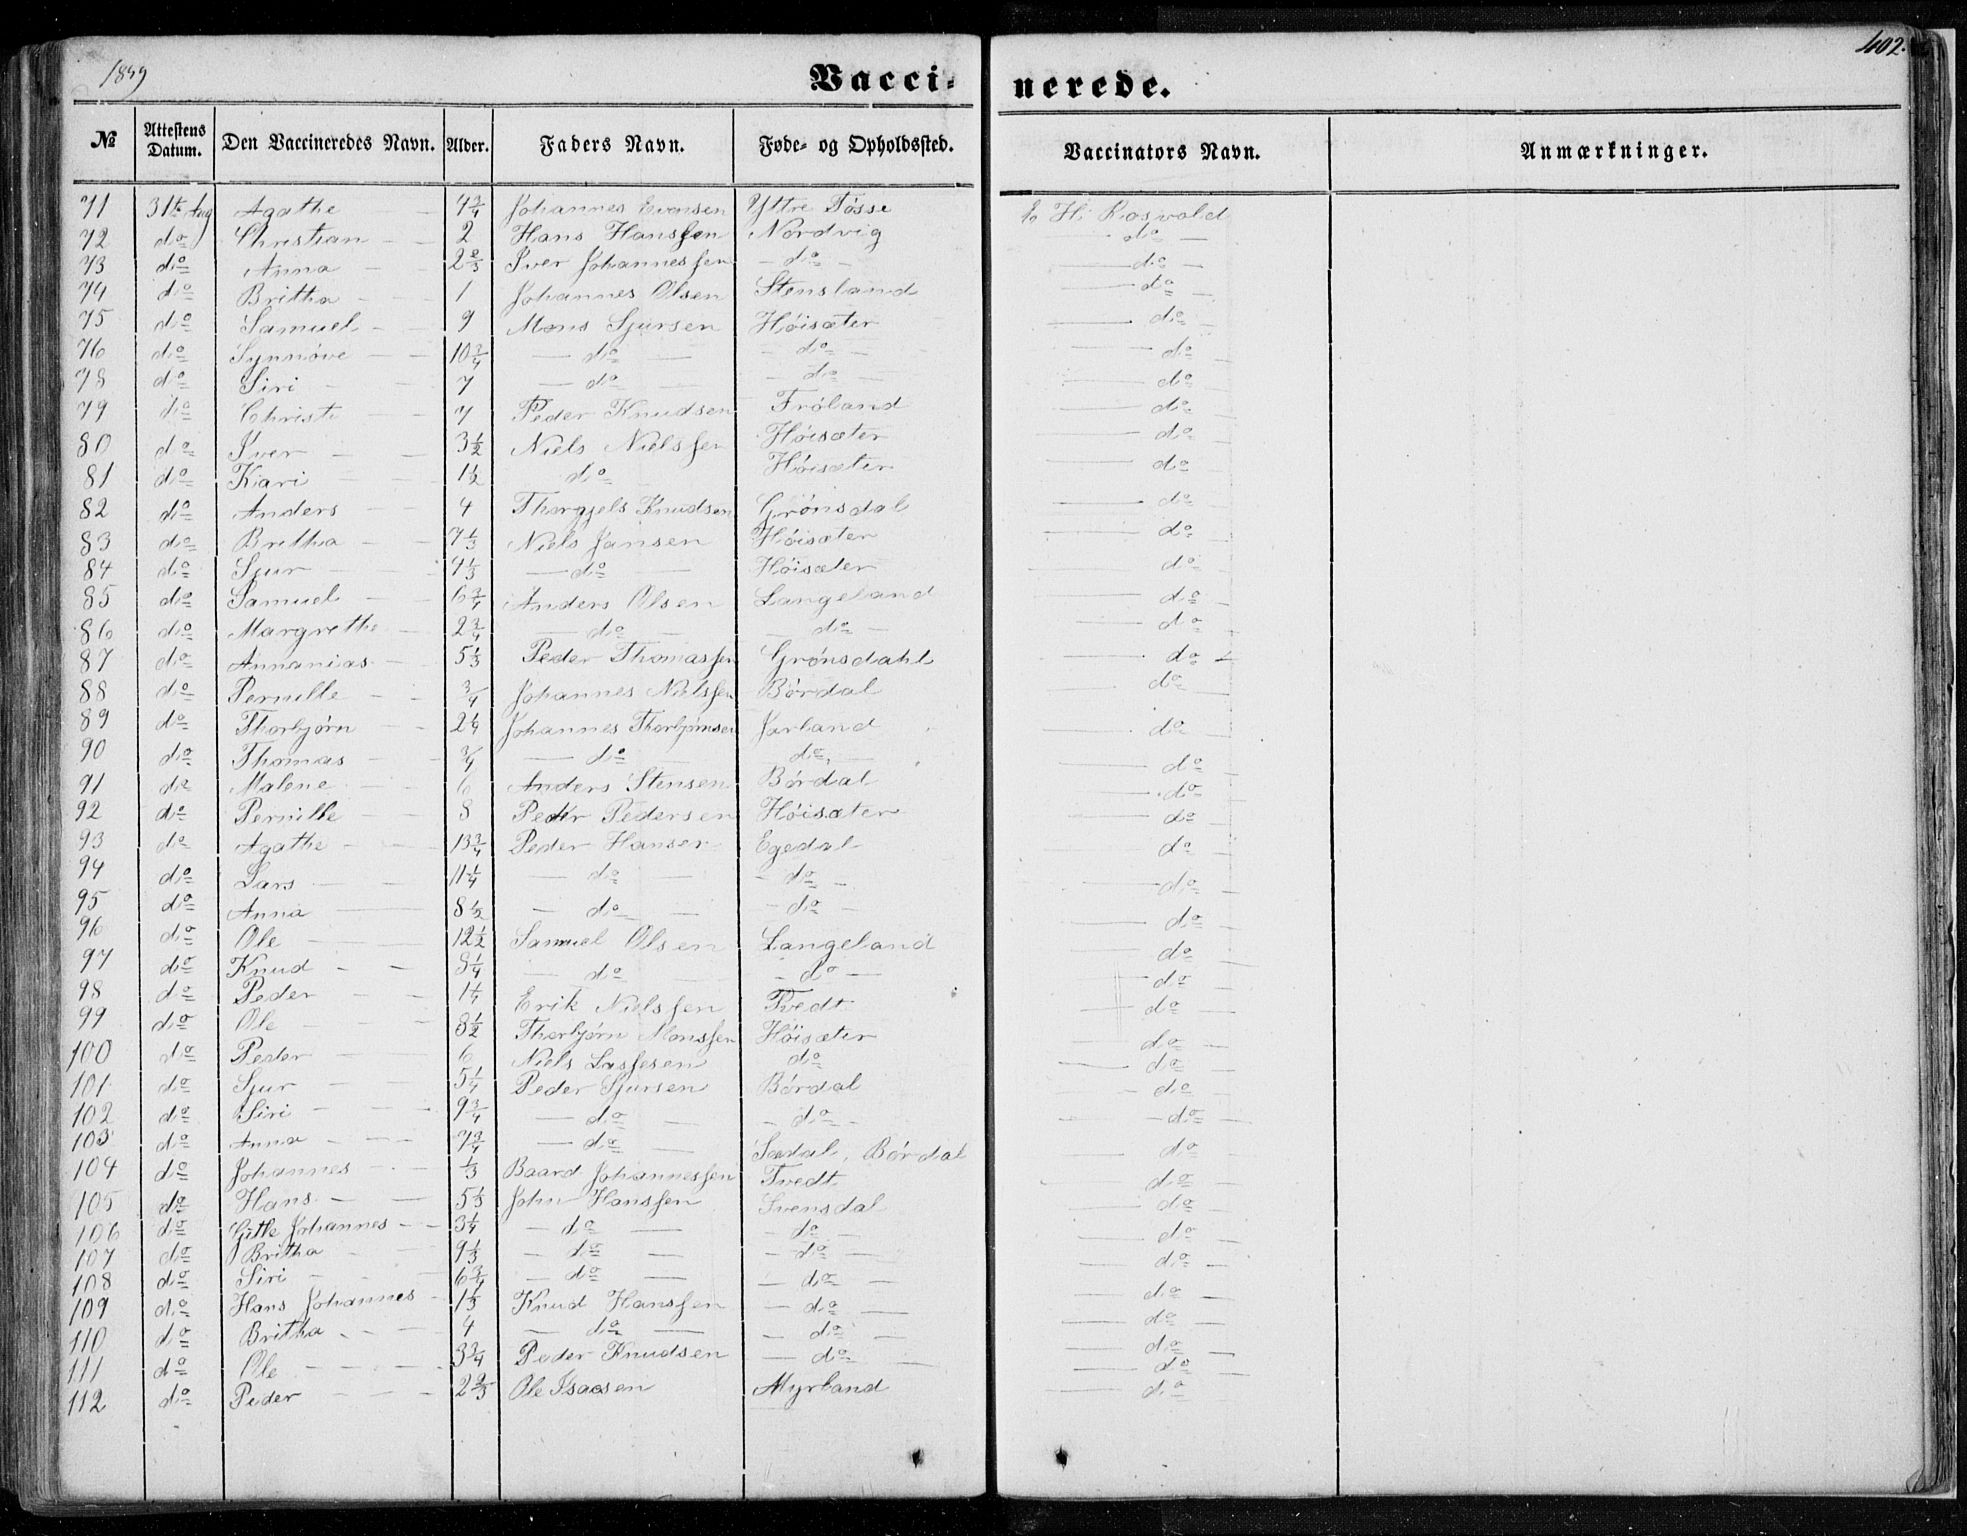 1859
402.
Vacci-
nerede.
№ | Attestens Datum. | Den Vaccineredes Navn. | Alder. | Faders Navn. | Føde- og Opholdssted. | Vaccinators Navn. | Anmærkninger.
71 31te Aug Agathe — 4 3/4 Johannes Evensen Yttre Tøsse E. H. Rosvold
72 do Christian — — 2 Hans Hanssen Nordvig — do —
73 do Anna — — 2 2/3 Iver Johannessen — do — — do —
74 do Britha — — 1 Johannes Olsen Stensland — do —
75 do Samuel — — 9 Mons Sjursen Høisæter — do —
76 do Synnøve — — 10 3/4 — do — — do — — do —
78 do Siri — — 7 — do — — do — — do —
79 do Christi — — 7 Peder Knudsen Frøland — do —
80 do Iver — — 3 1/2 Niels Nielssen Høisæter — do —
81 do Kari — — 1 1/2 do Høisæter — do
82 do Anders — — 4 Thorgjels Knudsen Grønsdal — do —
83 do Britha — — 7 1/3 Niels Jansen Høisæter — do —
84 do Sjur — — 4 1/3 — do — Høisæter — do —
85 do Samuel — — 6 3/4 Anders Olsen Langeland — do —
86 do Margrethe — 2 3/4 — do — — do — — do —
87 do Annanias — — 5 1/3 Peder Thomassen Grønsdahl — do —
88 do Pernille — — 3/4 Johannes Nielssen Børdal — do —
89 do Thorbjørn — — 2 1/4 Johannes Thorbjørnsen Jarland — do —
90 do Thomas — — 3/4 — do do — — do —
91 do Malene — — 6 Anders Stensen Børdal — do —
92 do Pernille — — 8 Peder Pedersen Høisæter — do —
93 do Agathe — — 13 3/4 Peder Hansen Egedal — do —
94 do Lars — — 11 1/4 — do — — do — — do —
95 do Anna — 8 1/2 — do — — do — — do —
96 do Ole — 12 1/2 Samuel Olsen Langeland — do —
97 do Knud — — 8 1/4 — do — — do — — do —
98 do Peder — — 1 1/4 Erik Nielssen Tvedt — do —
99 do Ole — — 8 1/2 Thorbjørn Monssen Høisæter — do —
100 do Peder — — 6 Niels Lassesen do — do —
101 do Sjur — — 5 1/4 Peder Sjursen Børdal — do —
102 do Siri — — 9 3/4 — do — — do — — do —
103 do Anna — — 7 3/4 — do — Sædal, Børdal — do —
104 do Johannes — — 1/3 Baard Johannessen Tvedt — do —
105 do Hans — — 5 1/3 John Hanssen Svensdal — do —
106 do Gitle Johannes — — 3 1/4 — do — — do — — do —
107 do Britha — — 9 1/3 — do — — do — — do —
108 do Siri — — 6 3/4 — do — — do — — do —
109 do Hans Johannes — 1 1/3 Knud Hanssen — do — — do —
110 do Britha — — 4 — do — — do — — do —
111 do Ole — — 3 3/4 Peder Knudsen — do — — do —
112 do Peder — — 2 2/3 Ole Isacsen Myrland — do —